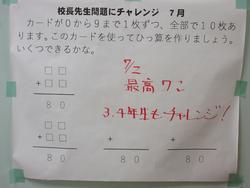 校長先生問題にチャレンジ　７月
カードが０から９まで１枚ずつ、全部で１０枚あ
ります。このカードを使ってひっ算を作りましょう。
いくつできるかな。
□□
＋□□
８０
7/=
最高7こ
3.4年生もチャレンジ!
□□
＋□□
８０
＋
８０
＋
８０